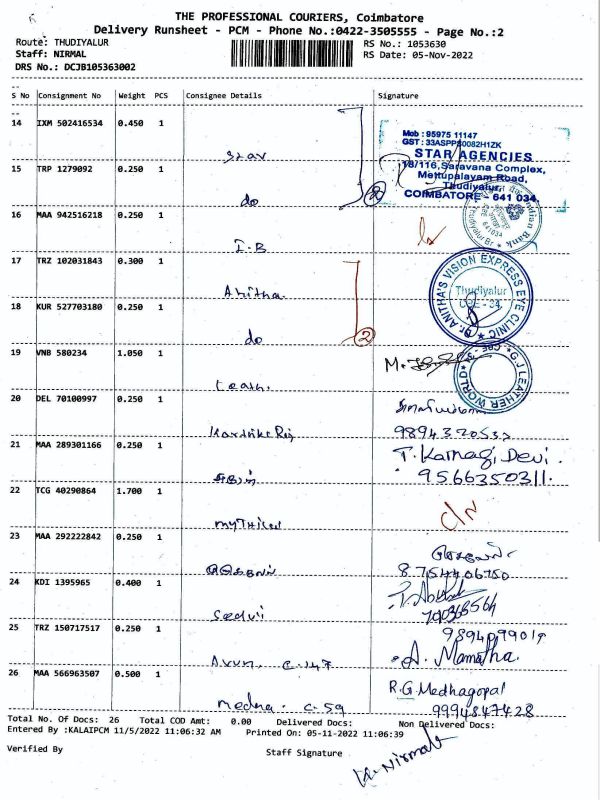 THE PROFESSIONAL COURIERS, Coimbatore
Delivery Runsheet - PCM - Phone No.:0422-3505555 - Page No.:2
Route: THUDIYALUR
RS No.: 1053630
Staff: NIRMAL
RS Date: 05-Nov-2022
DRS No.: DCJB105363002
S No Consignment No Weight PCS Consignee Details Signature
14 IXM 502416534 0.450 1
Mob : 95975 11147
STAR AGENCIES
18/116, Saravana Complex,
Mettupalayam Road,
Thudiyalur,
COIMBATORE - 641 034.
15 TRP 1279092 0.250 1
do
2
16 MAA 942516218 0.250 1
I.B
Indian Bank
17 TRZ 102031843 0.300 1
Anitha
Dr. ANITHA'S VISION EXPRESS EYE CLINIC
Thudiyalur
CBE - 34.
18 KUR 527703180 0.250 1
do
2
19 VNB 580234 1.050 1
G.J LEATHER WORLD
20 DEL 70100997 0.250 1
21 MAA 289301166 0.250 1
T. Karnagi Devi.
9566350311.
22 TCG 40290864 1.700 1
C/N
23 MAA 292222842 0.250 1
8754406750
24 KDI 1395965 0.400 1
25 TRZ 150717517 0.250 1
C-147
A. Mamatha.
26 MAA 566963507 0.500 1
C-59
R.G. Medhagopal
9994847428
Total No. Of Docs: 26 Total COD Amt: 0.00 Delivered Docs: Non Delivered Docs:
Entered By :KALAIPCM 11/5/2022 11:06:32 AM Printed On: 05-11-2022 11:06:39
Verified By Staff Signature
Nirmal